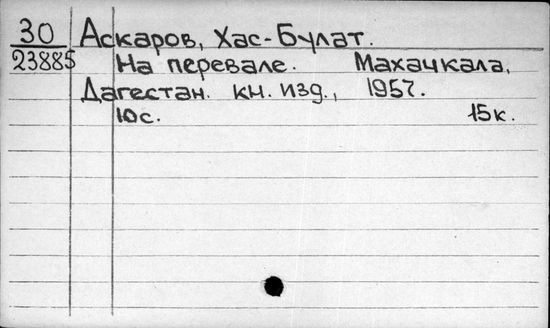 30 Аскаров, Хас-Булат.
23885 На перевале. Махачкала,
Дагестан. кн. изд., 1957.
10с. 15к.